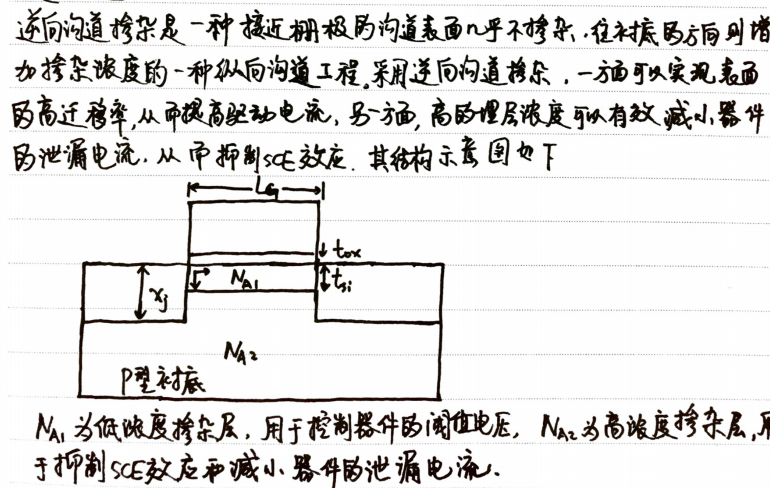 逆向沟道掺杂是一种接近栅极的沟道表面几乎不掺杂,往衬底的方向则增
加掺杂浓度的一种纵向沟道工程。采用逆向沟道掺杂,一方面可以实现表面
的高迁移率,从而提高驱动电流,另一方面,高的埋层浓度可以有效减小器件
的泄漏电流.从而抑制SCE效应.其结构示意图如下
LG
tox
xj
NA1
tsi
NA2
P型衬底
NA1为低浓度掺杂层,用于控制器件的阈值电压,NA2为高浓度掺杂层,用
于抑制SCE效应和减小器件的泄漏电流.